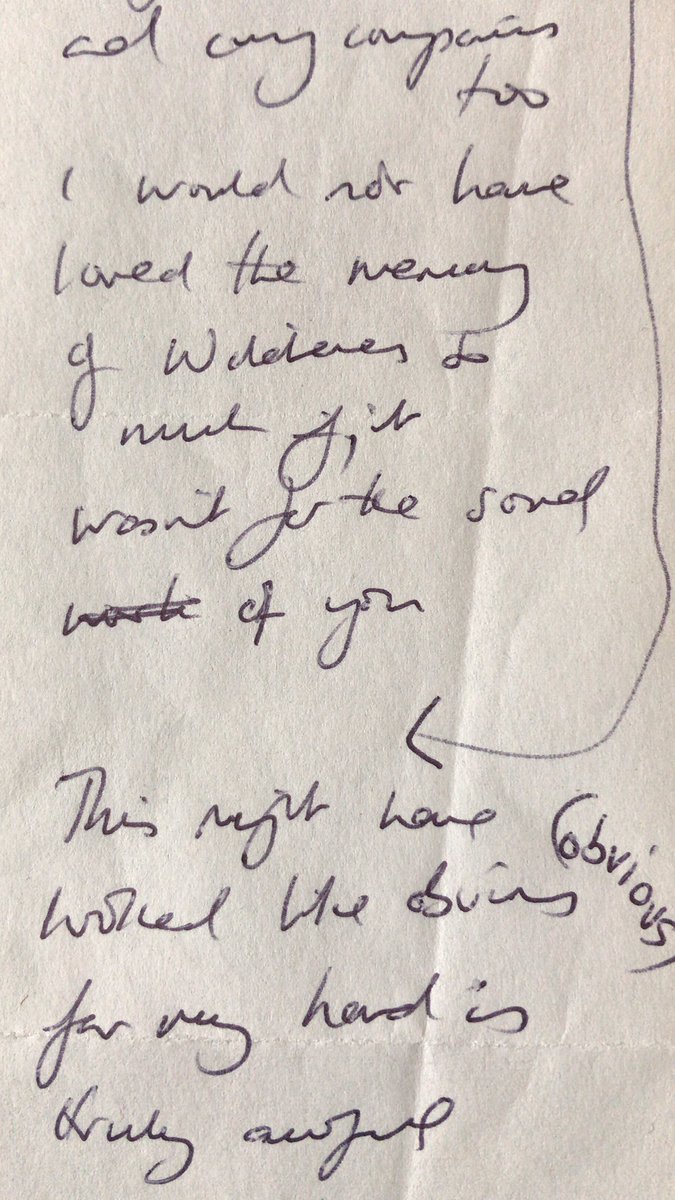 and my companions
too
I would not have
loved the memory
of Wilderness so
much if it
wasn't for the sound
of you
This might have (obvious)
looked like obvious
for my hand is
truly awful